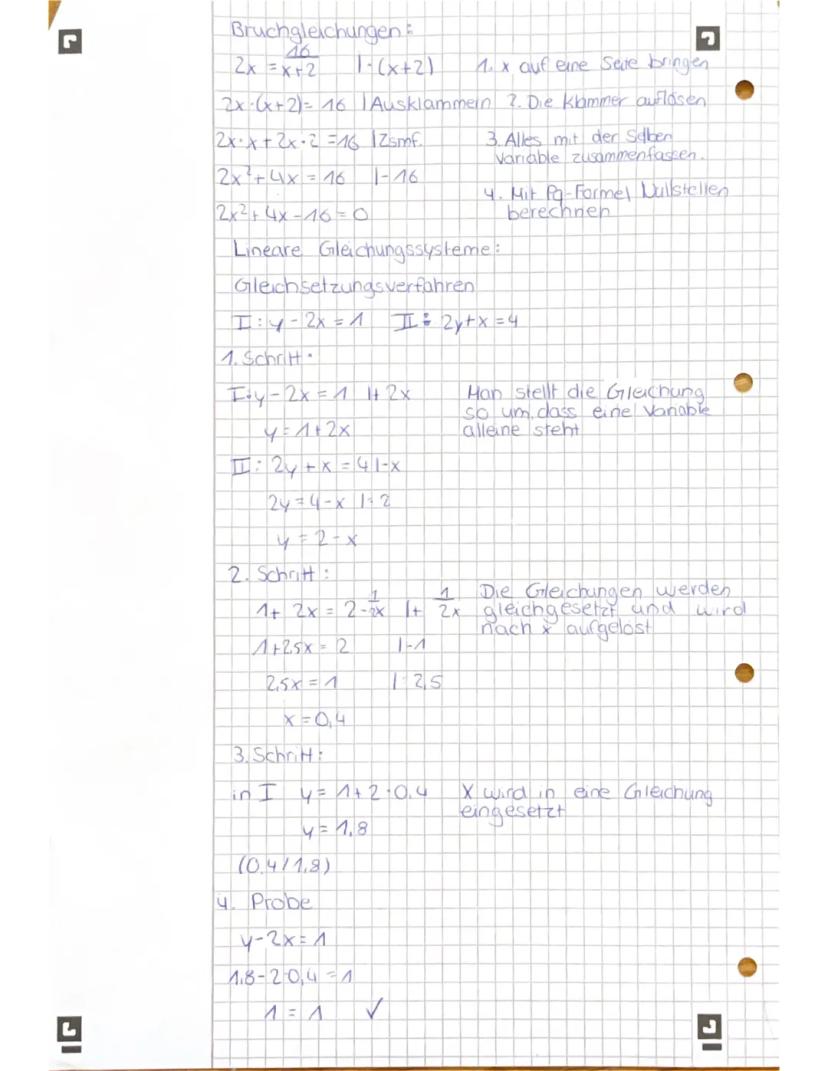 Bruchgleichungen:
2x = 16/x+2 |·(x+2) 1. x auf eine Seite bringen
2x·(x+2)= 16 |Ausklammern 2. Die Klammer auflösen
2x·x + 2x·2 =16 |Zsmf. 3. Alles mit der Selben
Variable zusammenfassen.
2x²+4x = 16 |-16
4. Mit Pq-Formel Nullstellen
berechnen
2x²+4x-16=0
Lineare Gleichungssysteme:
Gleichsetzungsverfahren
I: y-2x = 1 II: 2y+x =4
1. Schritt:
I: y-2x = 1 |+2x Man stellt die Gleichung
so um, dass eine Variable
y = 1+2x alleine steht
II: 2y+x = 4 |-x
2y=4-x |:2
y = 2-x
2. Schritt:
1+ 2x = 2-1/2x |+ 1/2x Die Gleichungen werden
gleichgesetzt und wird
nach x aufgelöst
1+2,5x = 2 |-1
2,5x = 1 |:2,5
x = 0,4
3. Schritt:
in I y = 1+2·0,4 X wird in eine Gleichung
eingesetzt
y = 1,8
(0,4/1,8)
4. Probe
y-2x= 1
1,8-2·0,4 =1
1 = 1 ✓